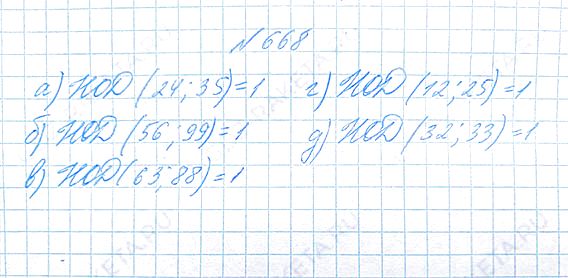 № 668
а) НОД (24; 35)=1 г) НОД (12; 25)=1
б) НОД (56; 99)=1 д) НОД (32; 33)=1
в) НОД (63; 88)=1